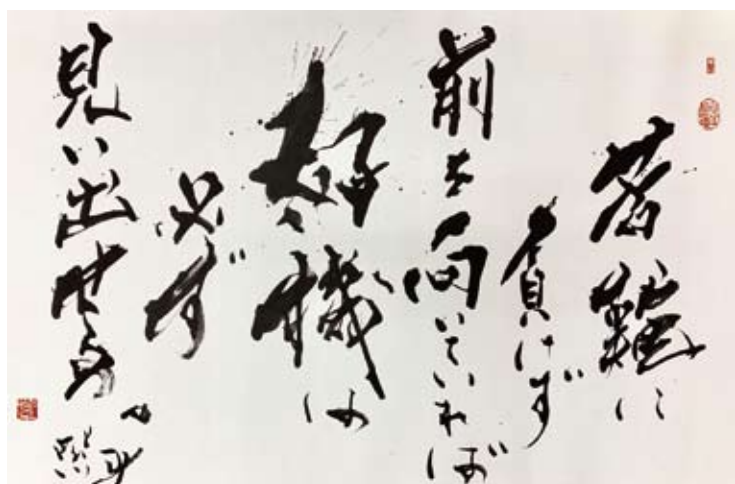 苦難に
負けず
前を向いていれば
好機は
必ず
見い出せる